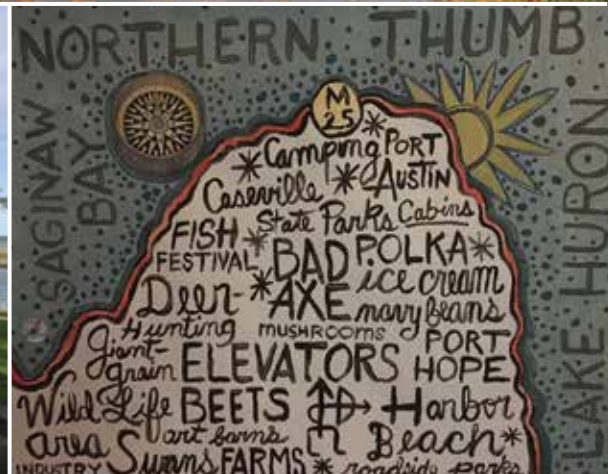 NORTHERN THUMB
SAGINAW
BAY
LAKE HURON
M
25
Camping PORT
AUSTIN
Caseville
State Parks Cabins
FISH
FESTIVAL
BAD
AXE
POLKA
ice cream
navy beans
Deer-
Hunting
MUSHROOMS
PORT
HOPE
Giant-
grain
ELEVATORS
Wild Life
area
BEETS
Harbor
Beach
art barns
INDUSTRY
Swans FARMS
roadside parks